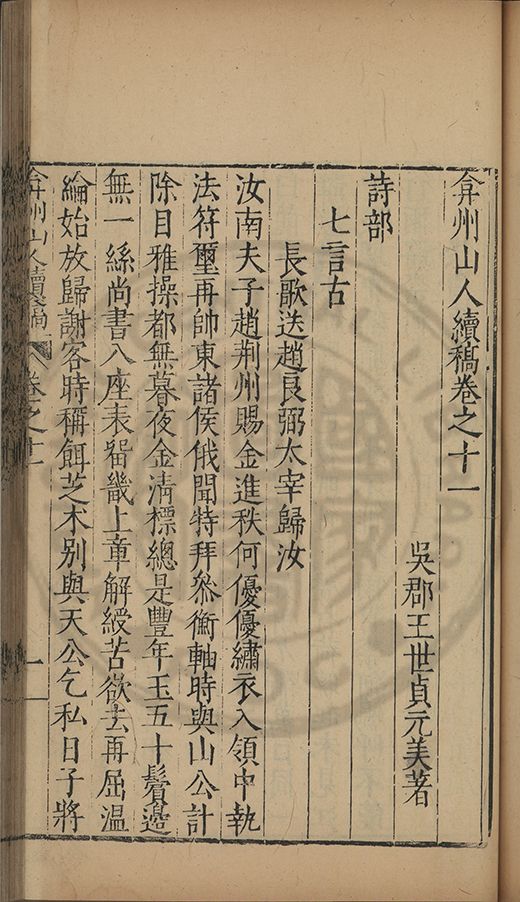 弇州山人續稿卷之十一
吳郡王世貞元美著
詩部
七言古
長歌送趙良弼太宰歸汝
汝南夫子趙荆州賜金進秩何優優繡衣入領中執
法符璽再帥東諸侯俄聞特拜叅衡軸時與山公計
除目雅操都無暮夜金清標總是豐年玉五十鬢邊
無一絲尚書八座表畱畿上章解綬苦欲去再屈温
綸始放歸謝客時稱餌芝术别與天公乞私日子將
弇州山人續稿 卷之十一 一